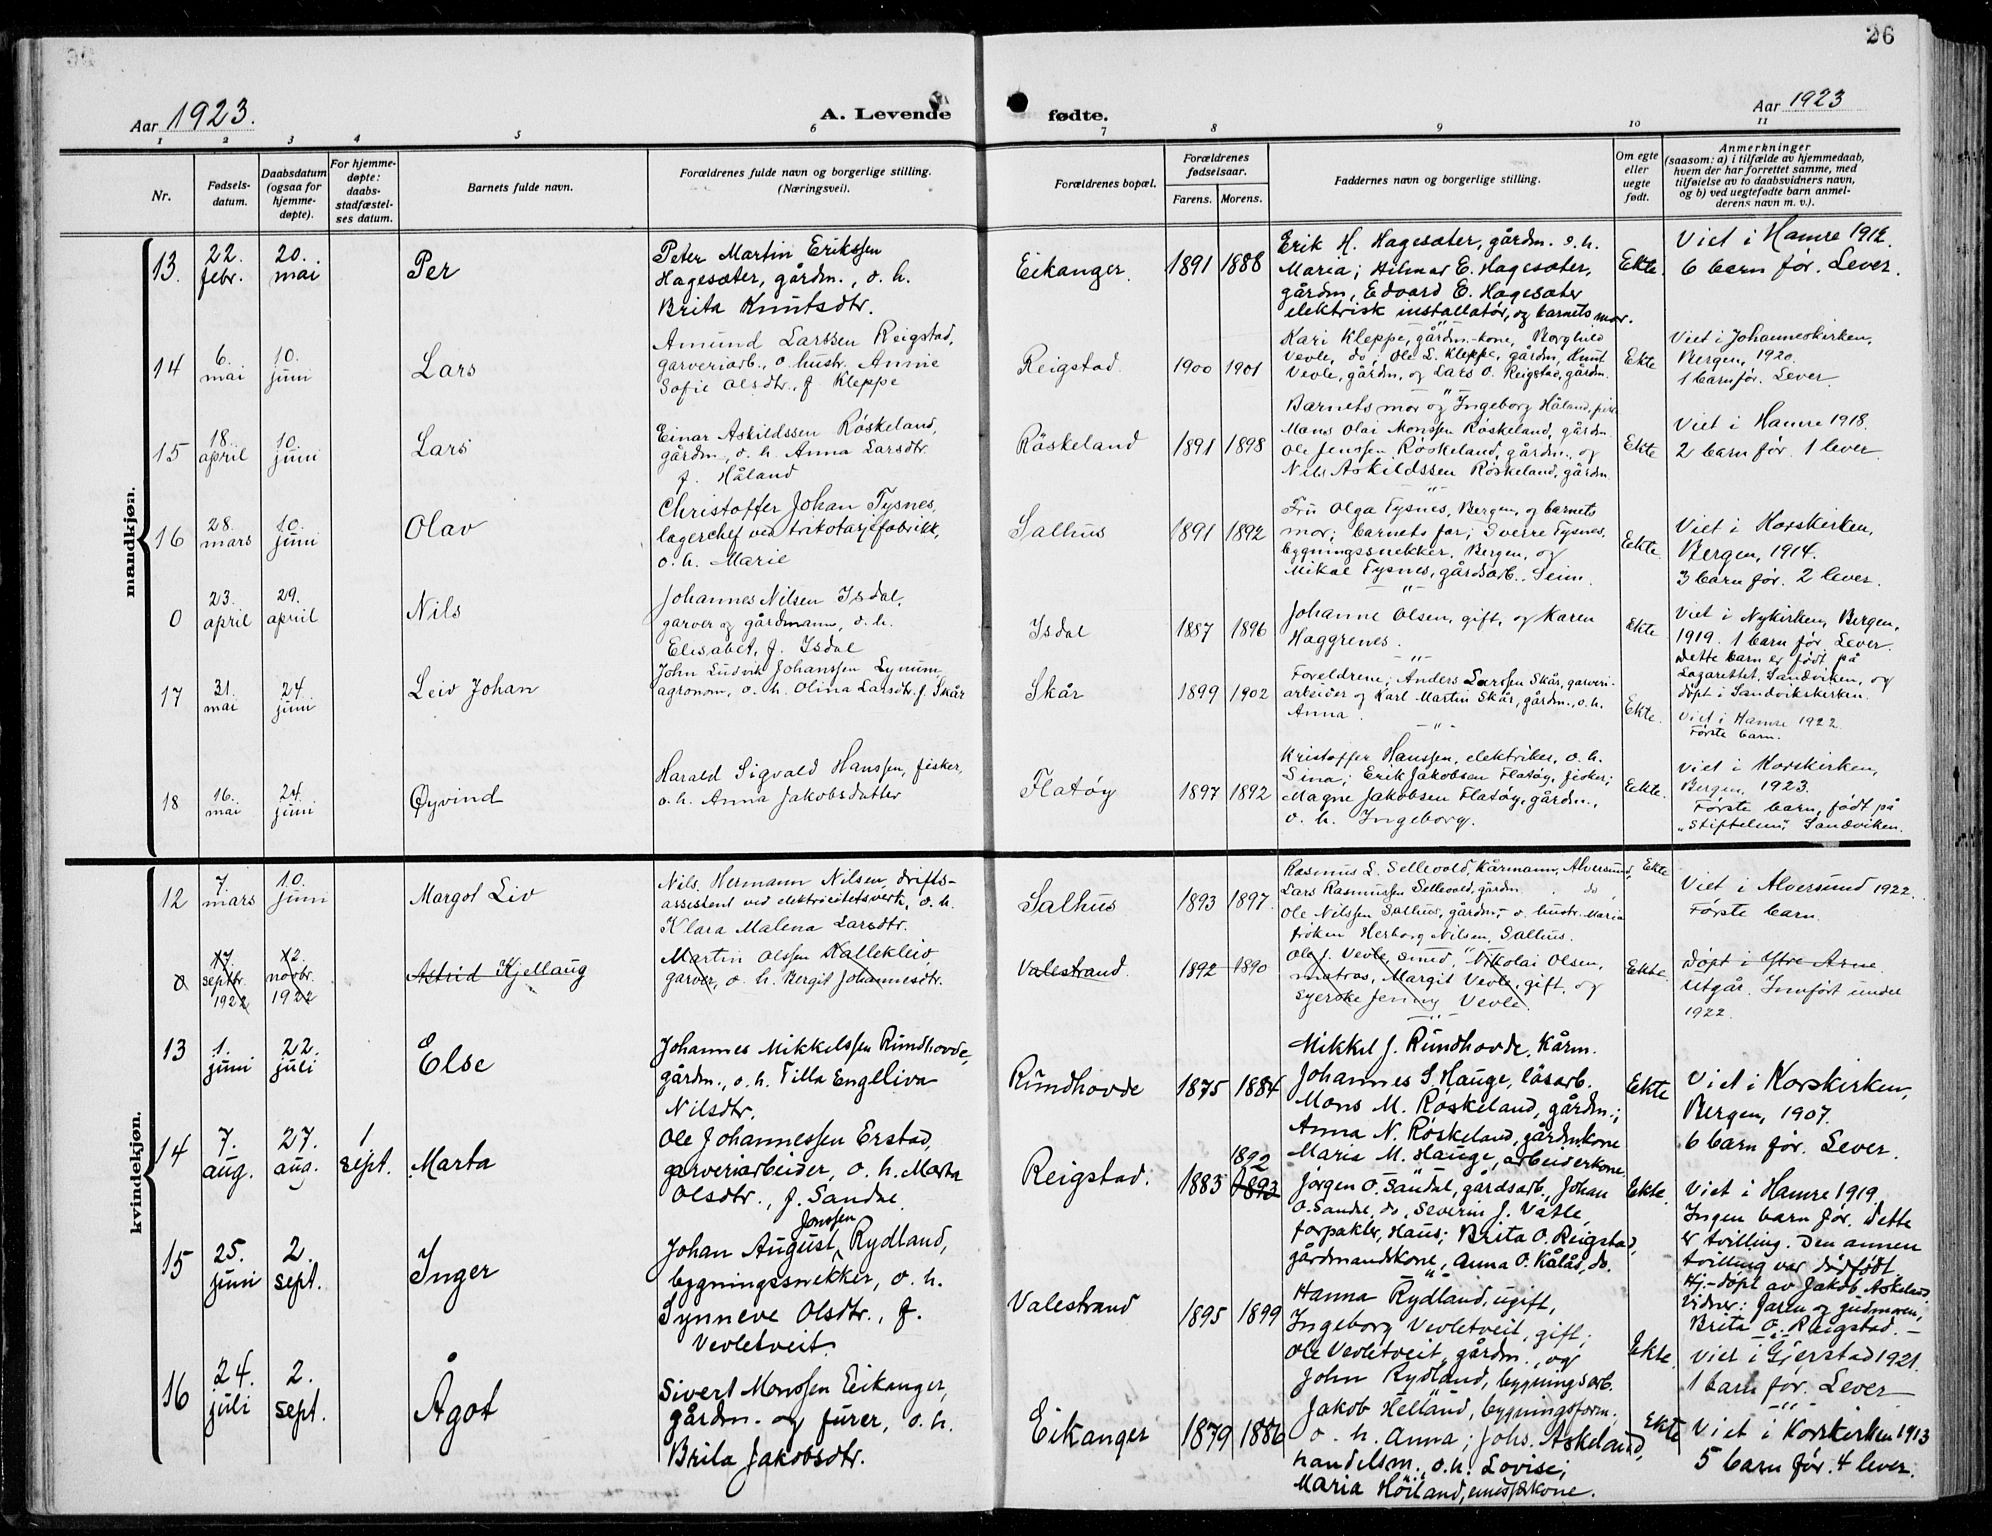 26
Aar 1923.
A. Levende
fødte.
Aar 1923
1 2 3 4 5 6 7 8 9 10 11
Nr.
Fødsels-
datum.
Daabsdatum
(ogsaa for
hjemme-
døpte).
For hjemme-
døpte:
daabs-
stadfæstel-
ses datum.
Barnets fulde navn.
Forældrenes fulde navn og borgerlige stilling.
(Næringsvei).
Forældrenes bopæl.
Forældrenes
fødselsaar.
Farens. Morens.
Faddernes navn og borgerlige stilling.
Om egte
eller
uegte
født.
Anmerkninger
(saasom: a) i tilfælde av hjemmedaab,
hvem der har forrettet samme, med
tilføielse av to daabsvidners navn,
og b) ved uegtefødte barn anmel-
derens navn m. v.).
mandkjøn.
13.
22.
febr.
20.
mai
Per
Peter Martin Erikssen
Hagesæter, gårdm., o. h.
Brita Knutsdtr.
Eikanger.
1891 1888
Erik H. Hagesæter, gårdm. o. h.
Maria; Hilmar E. Hagesæter,
gårdm, Edvard E. Hagesæter
elektrisk installatør, og barnets mor.
Ekte.
Viet i Hamre 1912.
6 barn før. Lever.
14
6.
mai
10.
juni
Lars
Amund Larssen Reigstad,
garveriarb., o. hustr. Annie
Sofie Olsdtr., f. Kleppe
Reigstad.
1900 1901
Kari Kleppe, gårdm.-kone, Borghild
Vevle, do, Ole L. Kleppe, gårdm, Knut
Vevle, gårdm, og Lars O. Reigstad, gårdm.
Ekte
Viet i Johanneskirken,
Bergen, 1920.
1 barn før. Lever.
15
18.
april
10.
juni
Lars
Einar Askildssen Røskeland,
gårdm, o. h. Anna Larsdtr.
f. Håland
Røskeland
1891 1898
Barnets mor og Ingeborg Håland,
Mons Olai Monssen Røskeland, gårdm
Ole Jenssen Røskeland, gårdm., og
Nils Askildssen Røskeland, gårdm.
Ekte
Viet i Hamre 1918.
2 barn før. 1 lever
16
28.
mars
10.
juni
Olav
Christoffer Johan Tysnes,
lagerchef ved trikotagefabrikk,
o. h. Marie
Salhus
1891 1892
Fru Olga Tysnes, Bergen, og barnets
mor; barnets far; Sverre Tysnes,
bygningssnekker, Bergen, og
Mikal Tysnes, gårdsarb., Seim.
Ekte.
Viet i Korskirken,
Bergen, 1914.
3 barn før. 2 lever.
0
23.
april
29.
april
Nils
Johannes Nilsen Isdal,
garver og gårdmann, o. h.
Elisabet, f. Isdal
Isdal
1887 1896
Johanne Olsen, gift, og Karen
Haggrenes.
Ekte
Viet i Nykirken, Bergen,
1919. 1 barn før. Lever.
Dette barn er født på
Lazarettet, Sandviken, og
døpt i Sandvikskirken.
17
31.
mai
24.
juni
Leiv Johan
John Ludvik Johanssen Lynum,
agronom, o. h. Olina Larsdtr. f. Skår
Skår
1899 1902
Foreldrene; Anders Larssen Skår, garveri-
arbeider og Karl Martin Skår, gårdm., o. h.
Anna.
Ekte.
Viet i Hamre 1922.
Første barn.
18
16.
mai
24.
juni
Øyvind
Harald Sigvald Hanssen, fisker,
o. h. Anna Jakobsdatter
Flatøy
1897 1892
Kristoffer Hanssen, elektriker, o. h.
Sina; Erik Jakobsen Flatøy, fisker;
Magne Jakobsen Flatøy, gårdm.,
o. h. Ingeborg.
Ekte.
Viet i Korskirken,
Bergen, 1923.
Første barn, født på
"Stiftelsen", Sandviken.
kvindekjøn.
12
7.
mars
10.
juni
Margot Liv
Nils Hermann Nilsen, drifts-
assistent ved elektricitetsverk, o. h.
Klara Malena Larsdtr.
Salhus
1893 1897.
Rasmus L. Sellevold, kårmann, Alversund,
Lars Rasmussen Sellevold, gårdm. do
Ole Nilssen Salhus, gårdm, o. hustr. Maria
frøken Herborg Nilsen, Salhus.
Ekte
Viet i Alversund 1922.
Første barn.
0
17.
septbr.
1922
12.
novbr.
1922
Astrid Kjellaug
Martin Olssen Hallekleiv,
garver, o. h. Bergit Johannesdtr.
Valestrand.
1892 1890
Ole J. Vevle, smed, Nikolai Olsen,
matros, Margit Vevle, gift, og
syerske Jenny Vevle.
Ekte.
Døpt i Ytre Arne.
Utgår. Innført under
1922.
13
1.
juni
22.
juli
Else
Johannes Mikkelssen Rundhovde,
gårdm., o. h. Tilla Engeliva
Nilsdtr.
Rundhovde
1875 1884
Mikkel J. Rundhovde, kårm.
Johannes S. Hauge, løsarb.
Mons M. Røskeland, gårdm.;
Anna N. Røskeland, gårdmkone
Maria M. Hauge, arbeiderkone
Ekte
Viet i Korskirken,
Bergen, 1907.
6 barn før. Lever.
14
7.
aug.
27.
aug.
1
sept.
Marta
Ole Johannessen Erstad,
garveriarbeider, o. h. Marta
Olsdtr., f. Sandal.
Reigstad.
1883
1892
1893
Jørgen O. Sandal, gårdsarb., Johan
O. Sandal, do, Severin J. Vatle,
forpakter, Haus; Brita O. Reigstad,
gårdmandskone, Anna O. Kålås, do.
Ekte.
Viet i Hamre 1919.
Ingen barn før. Dette
er tvilling. Den annen
tvilling var dødfødt.
Hj.-døpt av Jakob Askeland.
Vidner: Faren og gudmoren,
Brita O. Reigstad.
15
25.
juni
2.
sept.
Inger
Johan August Jonssen Rydland,
bygningssnekker, o. h.
Synneve Olsdtr., f.
Vevletveit.
Valestrand
1895 1899
Hanna Rydland, ugift,
Ingeborg Vevletveit, gift;
Ole Vevletveit, gårdm., og
John Rydland, bygningsarb.
Ekte.
Viet i Gjerstad 1921.
1 barn før. Lever
16
24.
juli
2.
sept.
Ågot
Sivert Monssen Eikanger,
gårdm. og furer, o. h.
Brita Jakobsdtr.
Eikanger
1879 1886
Jakob Helland, bygningsform.,
o. h. Anna; Johs. Askeland,
handelsm., o. h. Lovise;
Maria Høiland,
Ekte
Viet i Korskirken 1913
5 barn før. 4 lever.